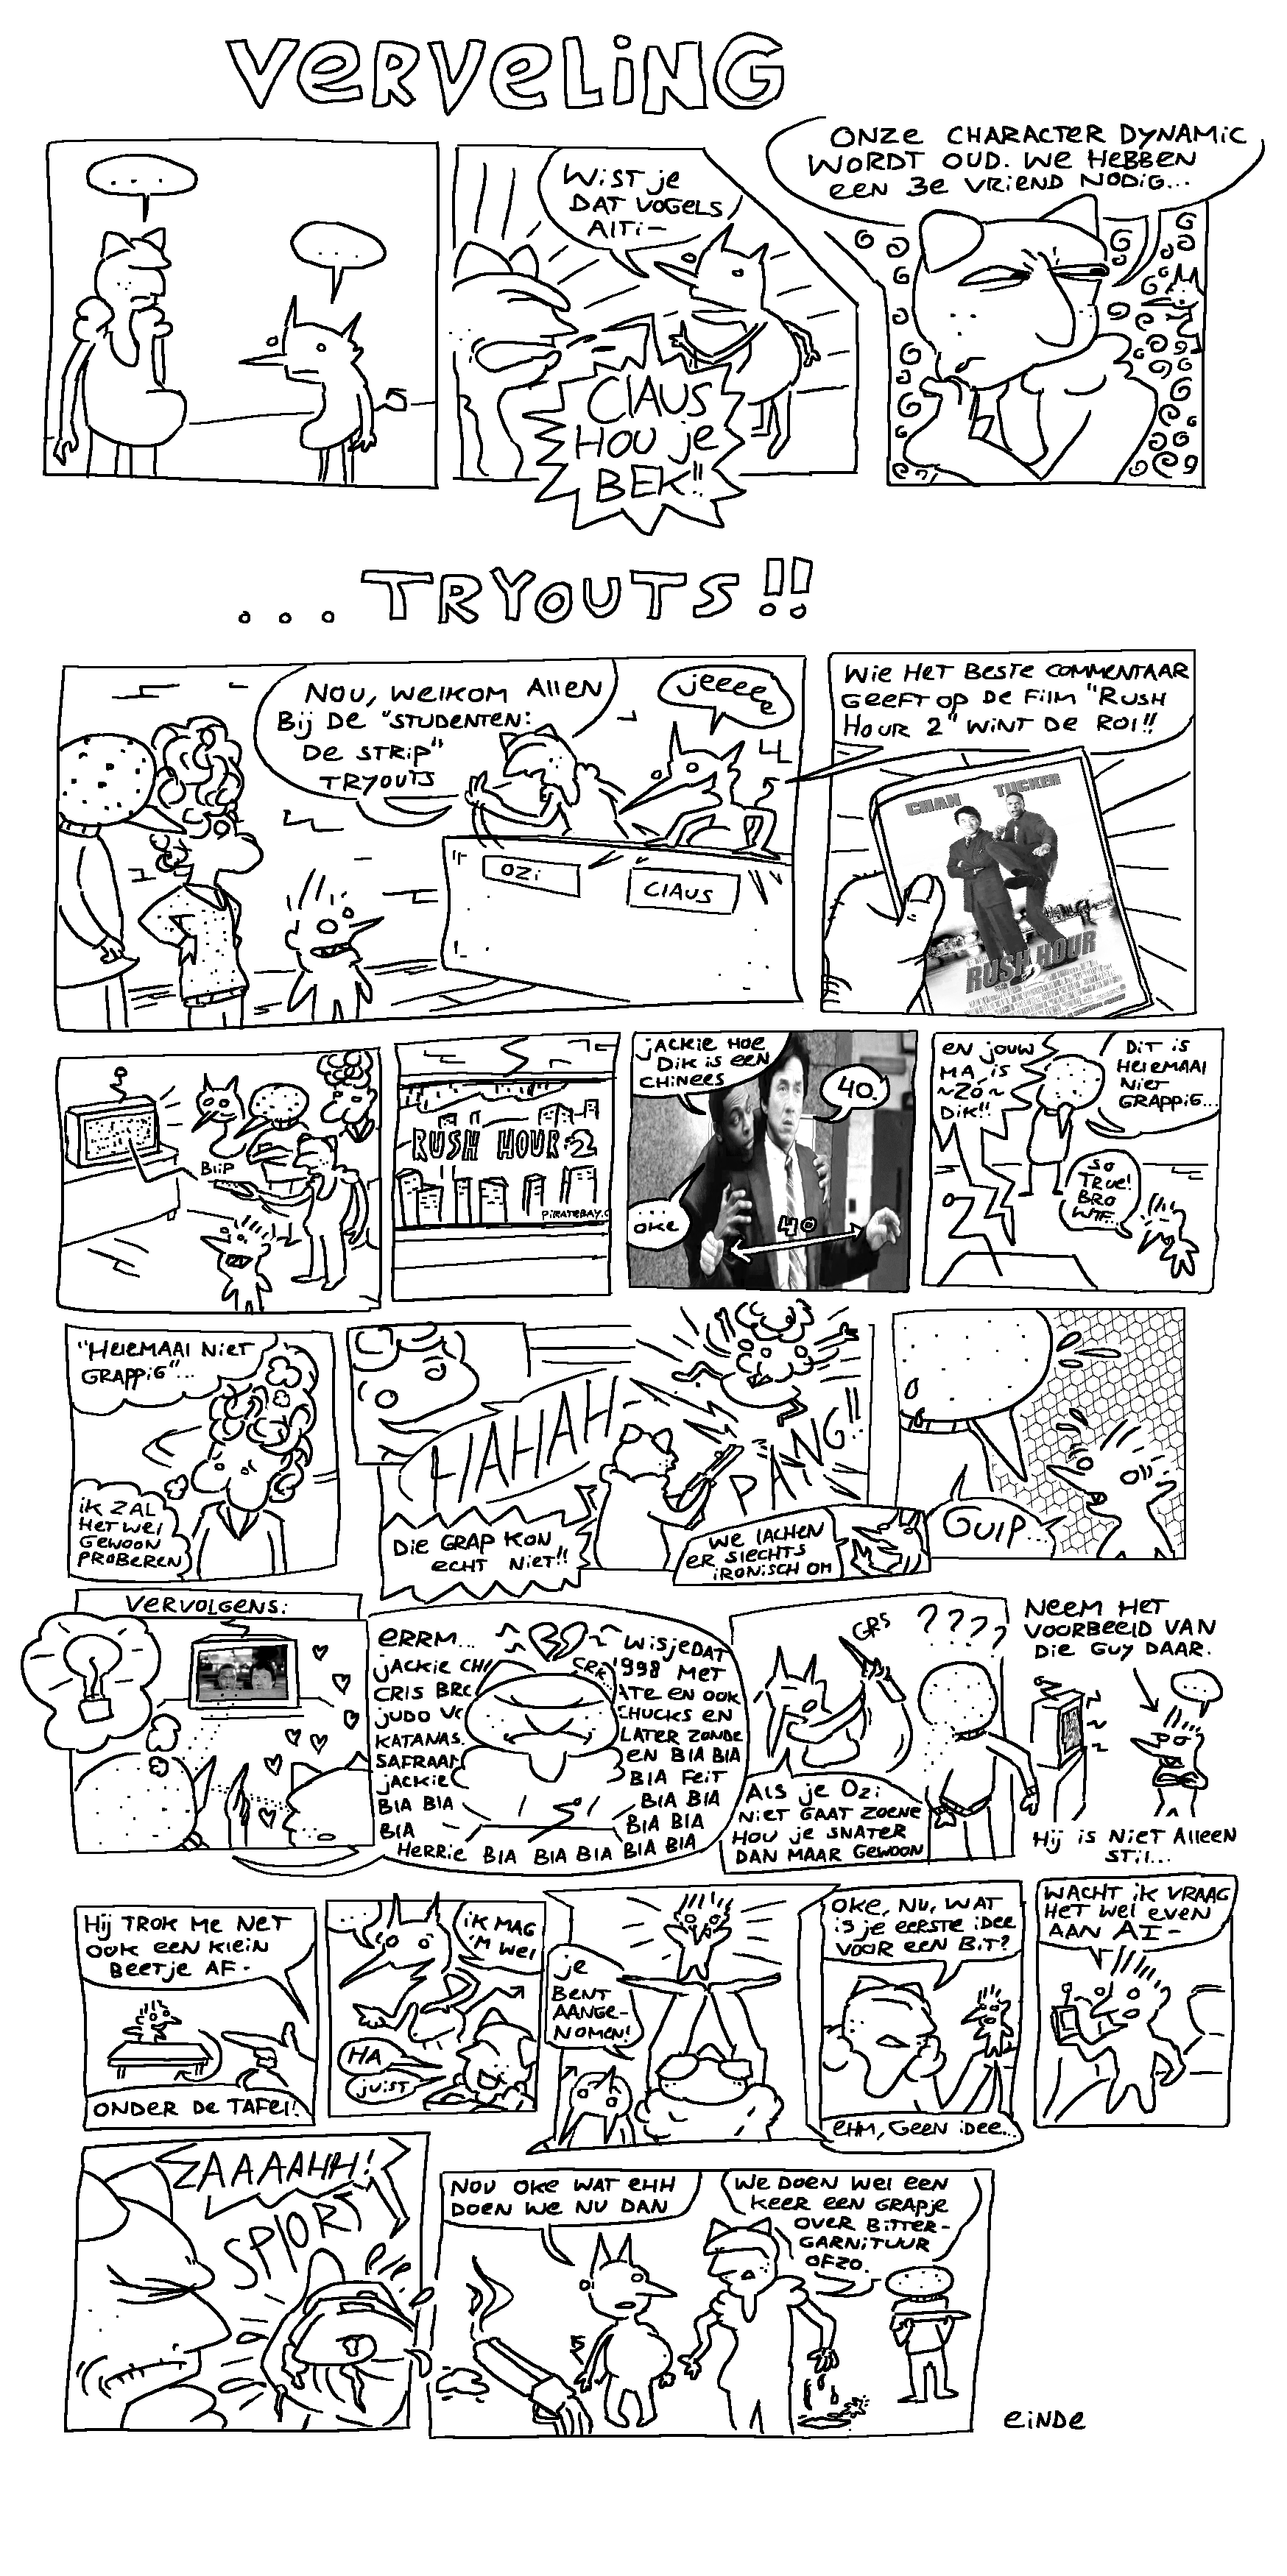 VERVELING
...
...
WIST JE
DAT VOGELS
ALTI-
CLAUS
HOU JE
BEK!!
ONZE CHARACTER DYNAMIC
WORDT OUD. WE HEBBEN
EEN 3E VRIEND NODIG...
...TRYOUTS!!
NOU, WELKOM ALLEN
BIJ DE "STUDENTEN:
DE STRIP"
TRYOUTS
JEEEEE
OZI
CLAUS
WIE HET BESTE COMMENTAAR
GEEFT OP DE FILM "RUSH
HOUR 2" WINT DE ROL!!
CHAN TUCKER
RUSH HOUR
2
BLIP
RUSH HOUR 2
PIRATEBAY.
JACKIE HOE
DIK IS EEN
CHINEES
40.
...
OKE
40
EN JOUW
MA IS
~ZÓ~
DIK!!
DIT IS
HELEMAAL
NIET
GRAPPIG...
SO
TRUE!
BRO
WTF...
"HELEMAAL NIET
GRAPPIG"...
IK ZAL
HET WEL
GEWOON
PROBEREN
HAHAH-
PANG!!
DIE GRAP KON
ECHT NIET!!
WE LACHEN
ER SLECHTS
IRONISCH OM
GULP...
VERVOLGENS:
ERRM...
JACKIE CH
CRIS BRO
JUDO VO
KATANAS
SAFRAAN
JACKIE
BLA BLA
BLA
HERRIE BLA BLA BLA BLA BLA
CRK
WISJEDAT
1998 MET
ATE EN OOK
CHUCKS EN
LATER ZONDE
EN BLA BLA
BLA FEIT
BLA BLA
BLA BLA
GRS
????
ALS JE OZI
NIET GAAT ZOENE
HOU JE SNATER
DAN MAAR GEWOON
NEEM HET
VOORBEELD VAN
DIE GUY DAAR.
...
HIJ IS NIET ALLEEN
STIL...
HIJ TROK ME NET
OOK EEN KLEIN
BEETJE AF-
ONDER DE TAFEL!
...
IK MAG
'M WEL
HA
JUIST
JE
BENT
AANGE-
NOMEN!
OKE, NU, WAT
IS JE EERSTE IDEE
VOOR EEN BIT?
EHM, GEEN IDEE...
WACHT IK VRAAG
HET WEL EVEN
AAN AI-
ZAAAAHH!
SPLORT
NOU OKE WAT EHH
DOEN WE NU DAN
WE DOEN WEL EEN
KEER EEN GRAPJE
OVER BITTER-
GARNITUUR
OFZO.
EINDE